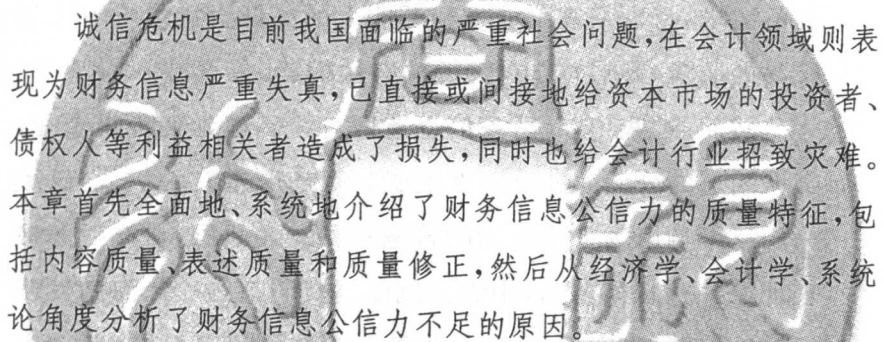 诚信危机是目前我国面临的严重社会问题,在会计领域则表
现为财务信息严重失真,已直接或间接地给资本市场的投资者、
债权人等利益相关者造成了损失,同时也给会计行业招致灾难。
本章首先全面地、系统地介绍了财务信息公信力的质量特征,包
括内容质量、表述质量和质量修正,然后从经济学、会计学、系统
论角度分析了财务信息公信力不足的原因。